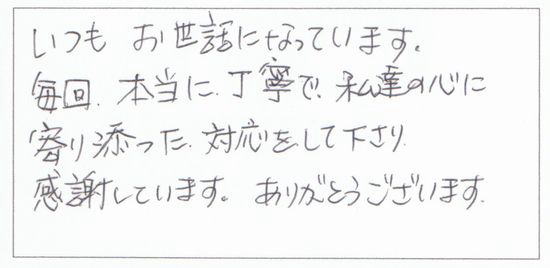 いつも お世話になっています。
毎回、本当に、丁寧で、私達の心に
寄り添った、対応をして下さり、
感謝しています。 ありがとうございます。